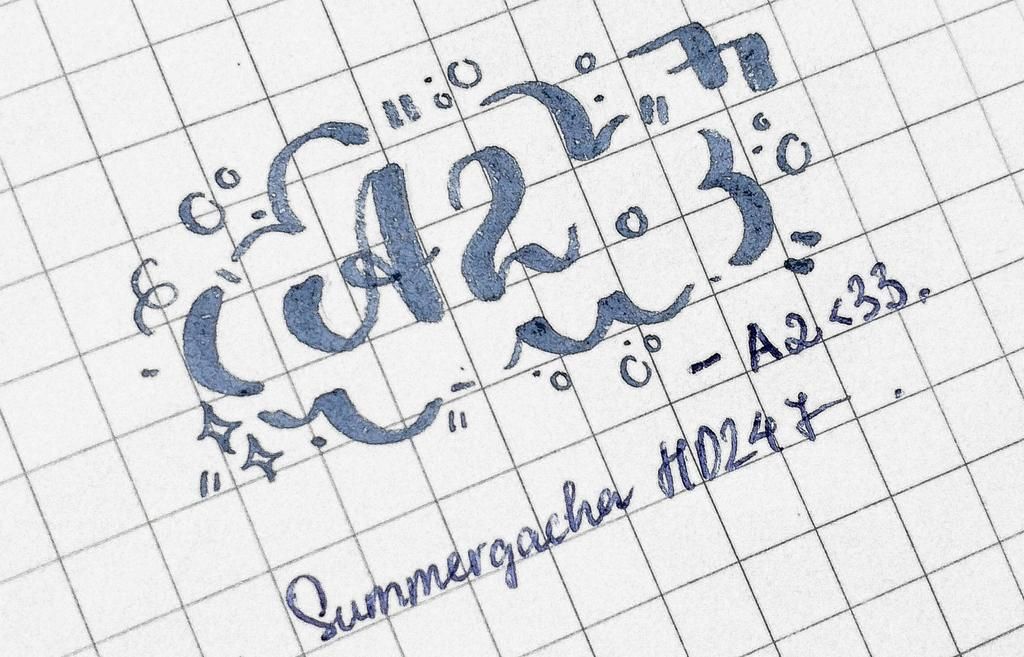 A2
- A2 <33.
Summergacha HD247